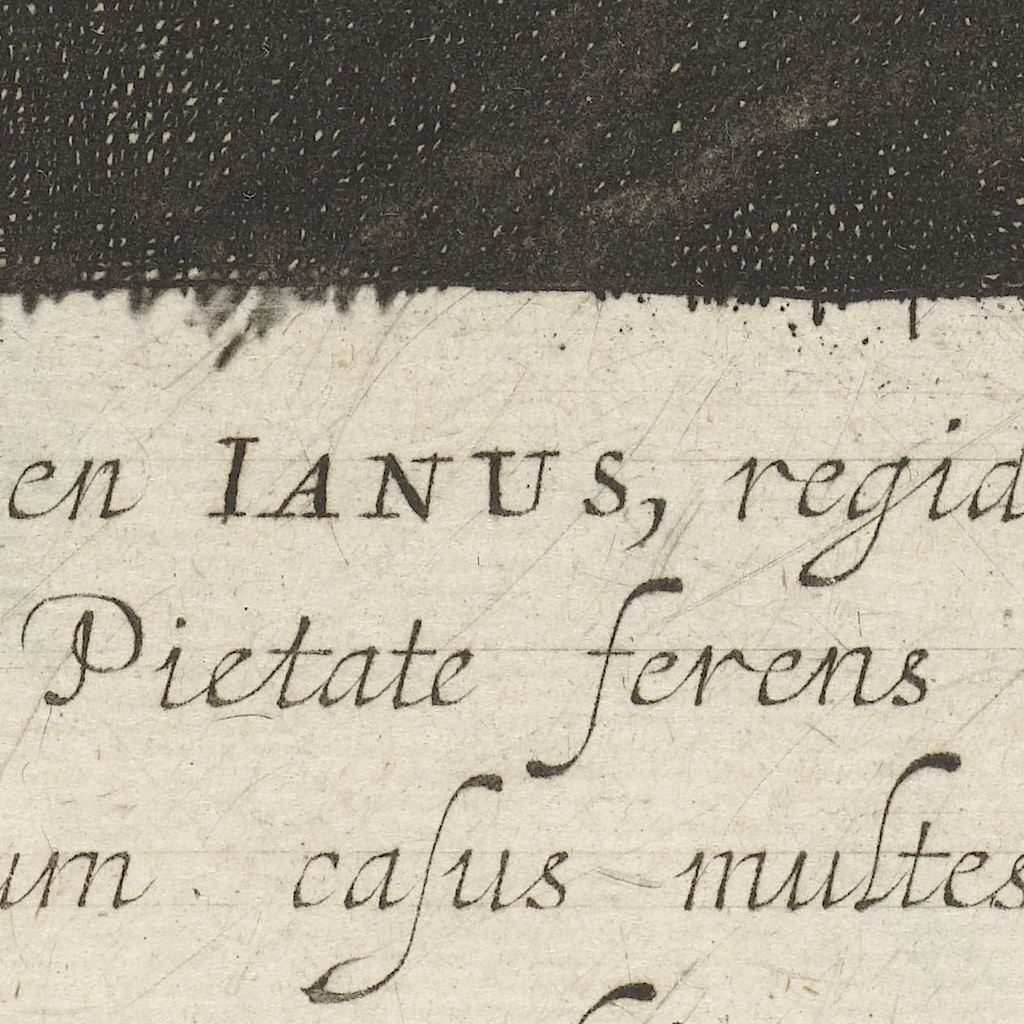 en IANUS, regid
Pietate ferens
um caſus multes